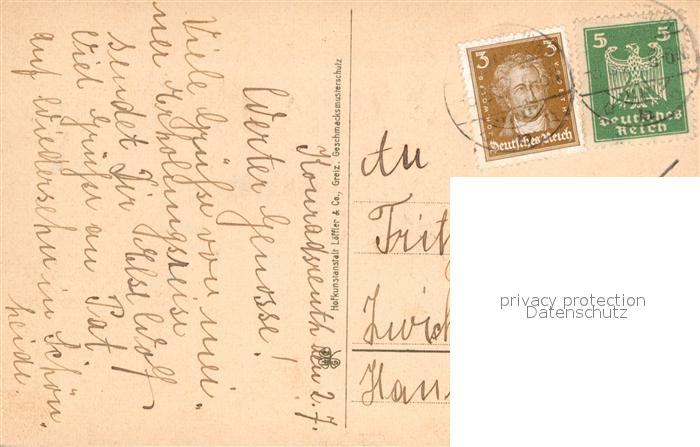 Konradsreuth den 2. 7.
Werter Genosse!
Viele Grüße von mei-
ner Erholungsreise
sendet Dir Else Wolf
Viel Grüße an Pat
auf Wiedersehn in Schön
heide.
Hofkunstanstalt Löffler & Co., Greiz. Geschmacksmusterschutz
3 3
JOH. WOLFG. V. GOETHE
Deutsches Reich
5 5
Deutsches
Reich
An
Frit
Zwick
Han
privacy protection
Datenschutz